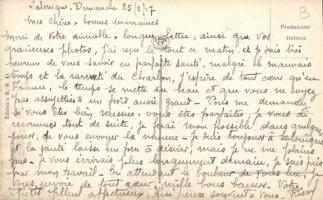 Salonique. Dimanche 25/2/17
Mes chères et bonnes marraines
Merci de votre aimable et longue lettre, ainsi que vos
gracieuses photos, j'ai reçu le tout ce matin et je suis très
heureux de vous savoir en parfaite santé, malgré le mauvais
temps et la rareté du charbon, j'espère de tout cœur qu'en
France, le temps se mette au beau et que vous ne soyez
pas assujetties à un froid aussi grand. Vous me demandez
si vous êtes bien sérieuses, vous êtes parfaites, je vous
tout de suite, je ferai mon possible dans quelques
jours, de vous envoyer la mienne, je suis toujours à Salonique
et la santé laisse un peu à désirer, mais je ne me plains
pas. je vous écrirais plus longuement demain, je suis pris
par mon travail. En attendant le bonheur de vous lire, je
vous envoie de tout cœur, mille bons baisers. Votre
petit filleul affectueux, qui pense souvent à vous.
Produzione
Italiana
3